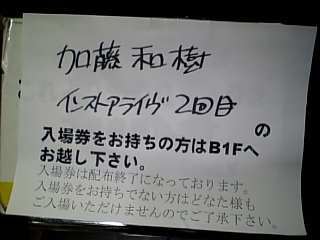 加藤和樹
インストアライヴ2回目
の
入場券をお持ちの方はB1Fへ
お越し下さい。
入場券は配布終了になっております。
入場券をお持ちでない方はどなた様も
ご入場いただけませんのでご了承下さい。